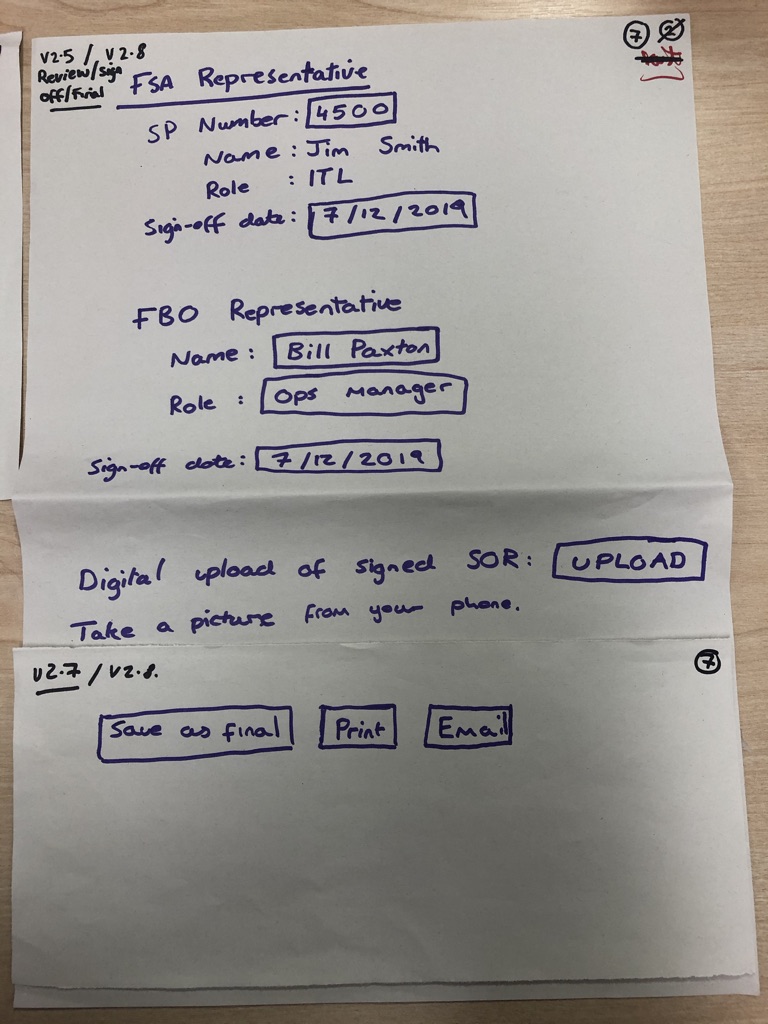 V2.5 / V2.8
Review/Sign
off/Final
7 2
FSA Representative
SP Number: 4500
Name: Jim Smith
Role : ITL
Sign-off date: 7/12/2019
FBO Representative
Name: Bill Paxton
Role : Ops Manager
Sign-off date: 7/12/2019
Digital upload of signed SOR: UPLOAD
Take a picture from your phone.
V2.7 / V2.8.
7
Save as final Print Email